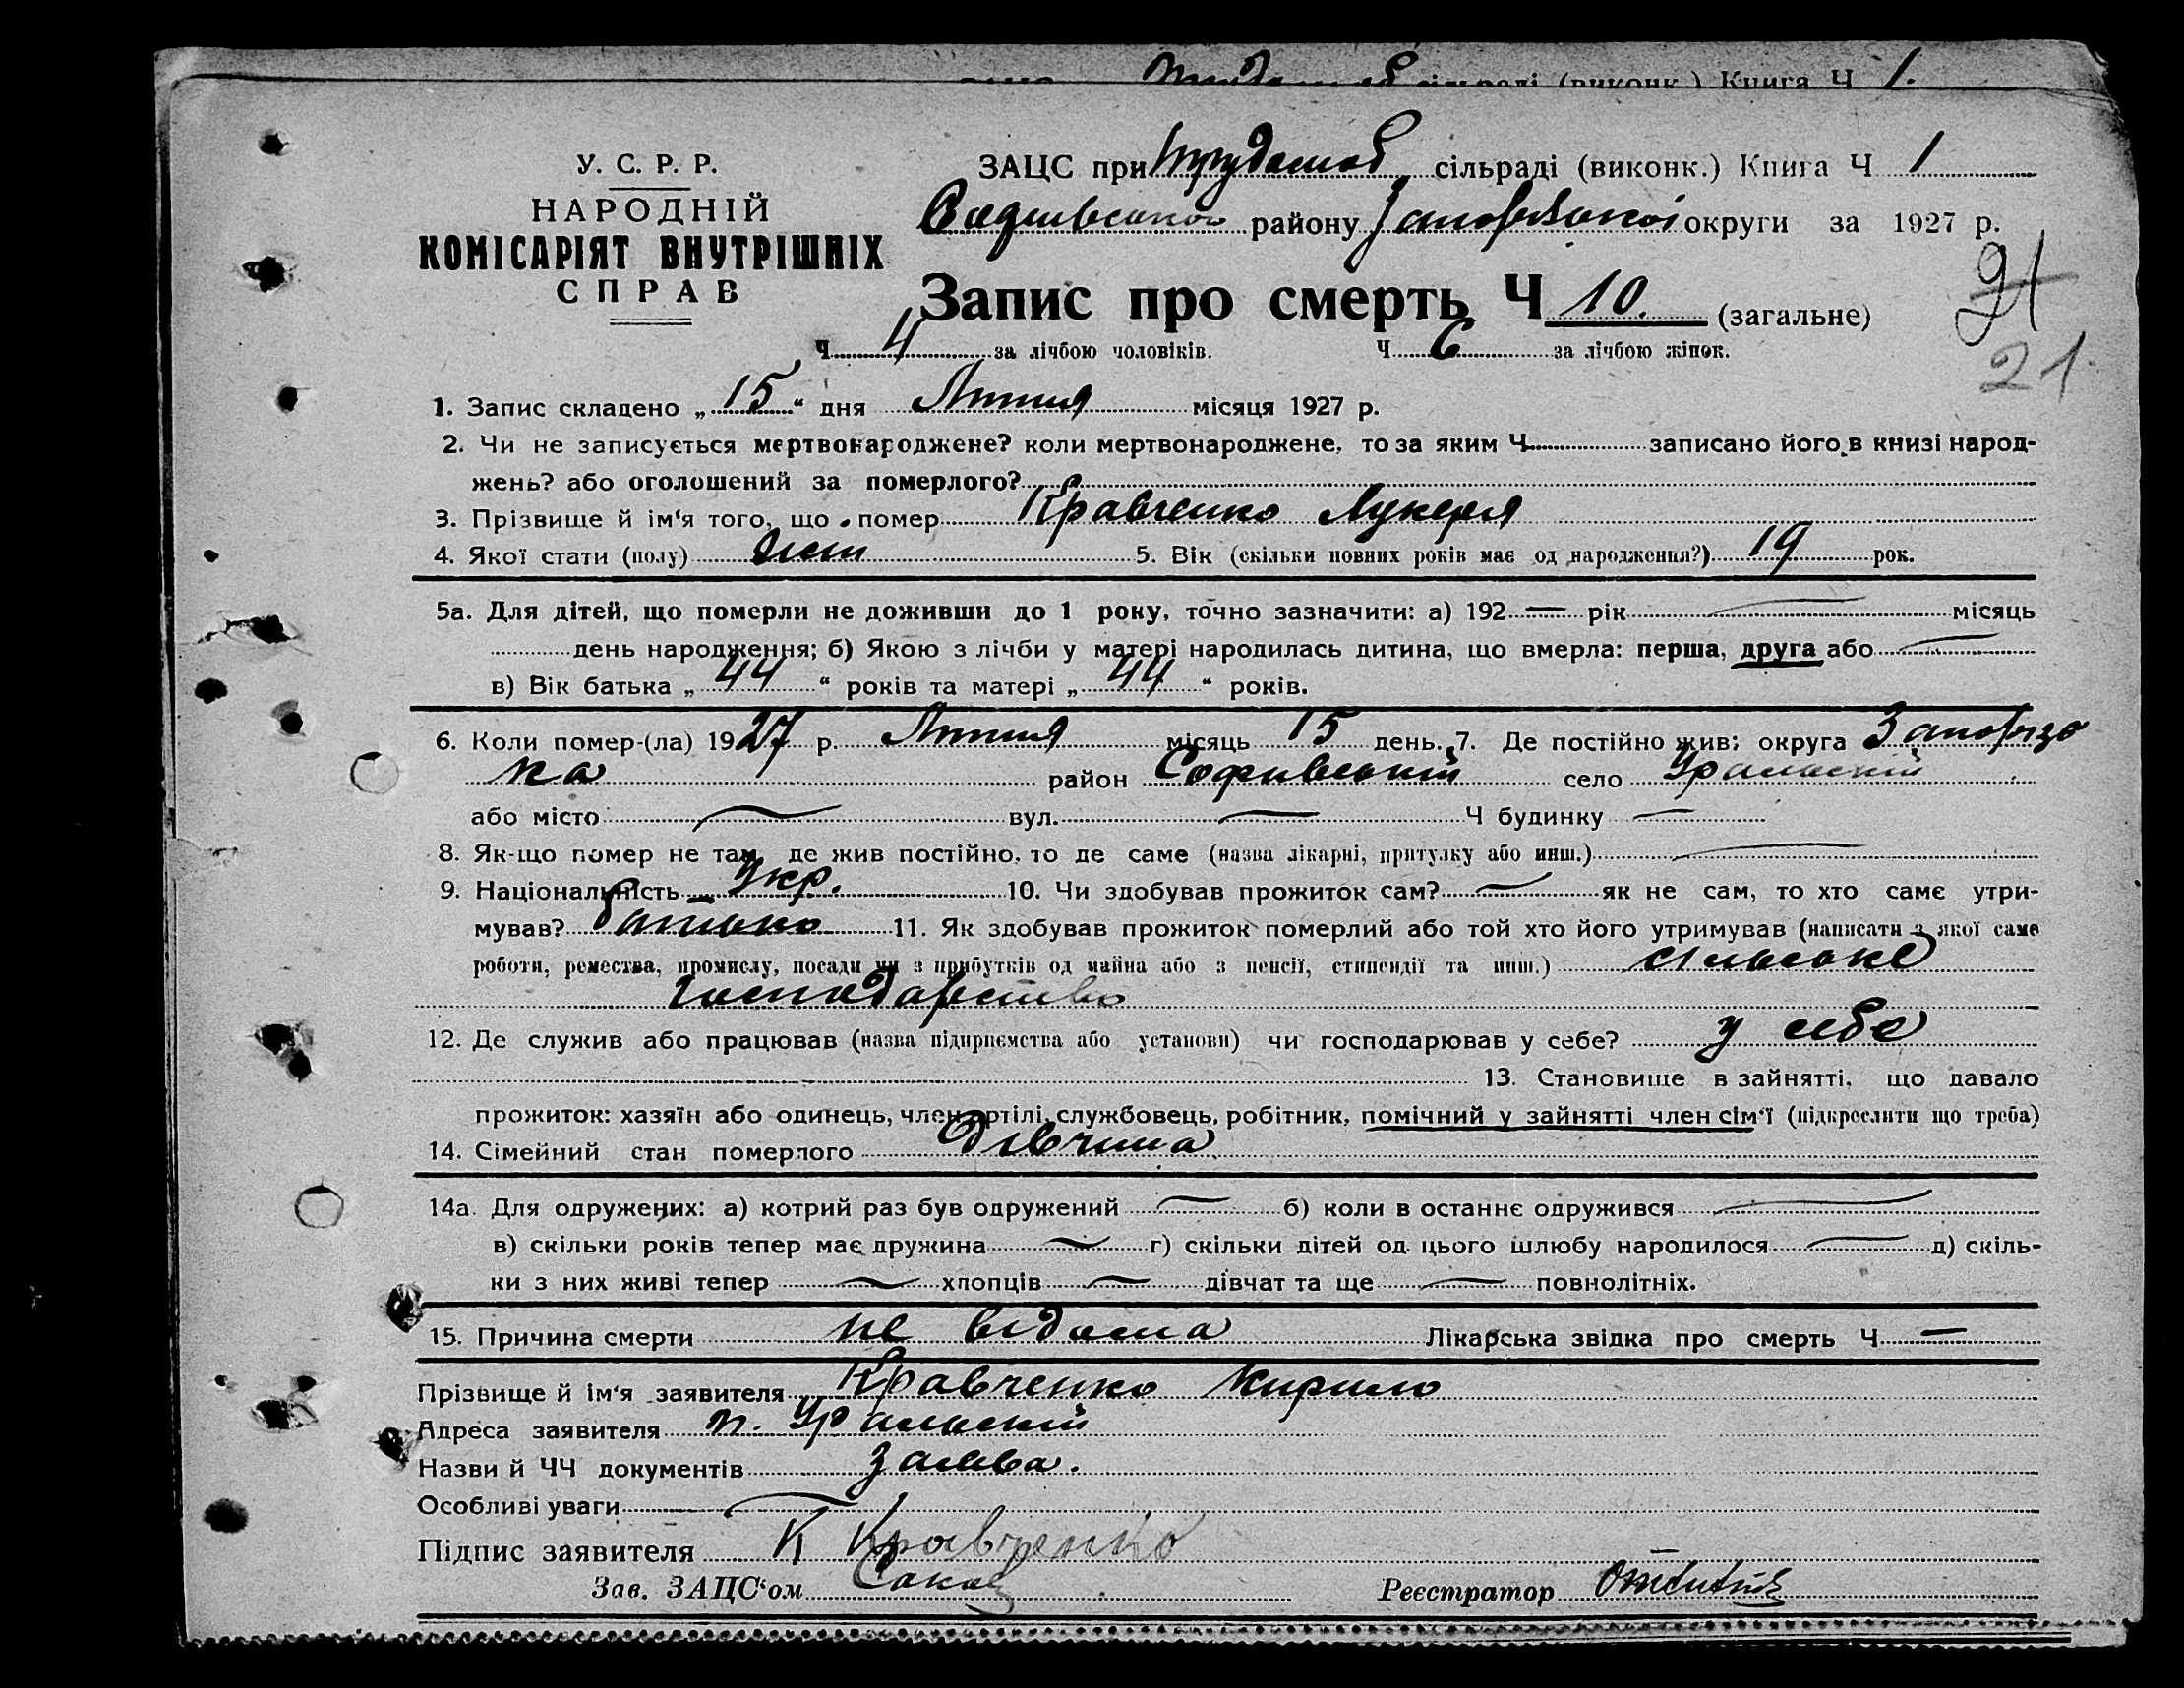 сільраді (виконк.) Книга Ч 1.
У. С. Р. Р.
НАРОДНІЙ
КОМІСАРІЯТ ВНУТРІШНІХ
СПРАВ
ЗАЦС при сільраді (виконк.) Книга Ч 1
району округи за 1927 р.
Запис про смерть Ч 10. (загальне)
21
21
Ч 4 за лічбою чоловіків. Ч 6 за лічбою жінок.
1. Запис складено „ 15 “ дня Липня місяця 1927 р.
2. Чи не записується мертвонароджене? коли мертвонароджене, то за яким Ч записано його в книзі народ-
жень? або оголошений за померлого?
3. Прізвище й ім‘я того, що помер Кравченко Лукеря
4. Якої стати (полу) жен 5. Вік (скільки повних років має од народження?) 19 рок.
5а. Для дітей, що померли не доживши до 1 року, точно зазначити: а) 192 — рік — місяць
день народження; б) Якою з лічби у матері народилась дитина, що вмерла: перша, друга або —
в) Вік батька „ 44 “ років та матері „ 44 “ років.
6. Коли помер-(ла) 1927 р. Липня місяць 15 день. 7. Де постійно жив: округа Запоризь
ка район Софиївській село Уральскій
або місто — вул. — Ч будинку —
8. Як-що помер не там, де жив постійно, то де саме (назва лікарні, притулку або инш.) —
9. Національність Укр. 10. Чи здобував прожиток сам? — як не сам, то хто саме утри-
мував? батько 11. Як здобував прожиток померлий або той хто його утримував (написати з якої саме
роботи, ремества, промислу, посади чи з прибутків од майна або з пенсії, стипендії та инш.) сільське
господарство
12. Де служив або працював (назва підприємства або установи) чи господарював у себе? у себе
13. Становище в зайнятті, що давало
прожиток: хазяїн або одинець, член артілі, службовець, робітник, помічний у зайнятті член сім‘ї (підкреслити що треба)
14. Сімейний стан померлого Дівчина
14а. Для одружених: а) котрий раз був одружений — б) коли в останнє одружився —
в) скільки років тепер має дружина — г) скільки дітей од цього шлюбу народилося — д) скіль-
ки з них живі тепер — хлопців — дівчат та ще — повнолітніх.
15. Причина смерти не відома Лікарська звідка про смерть Ч —
Прізвище й ім‘я заявителя Кравченко Кирило
Адреса заявителя п. Уральскій
Назви й ЧЧ документів заява.
Особливі уваги —
Підпис заявителя К Кравченко
Зав. ЗАЦС‘ом Реєстратор